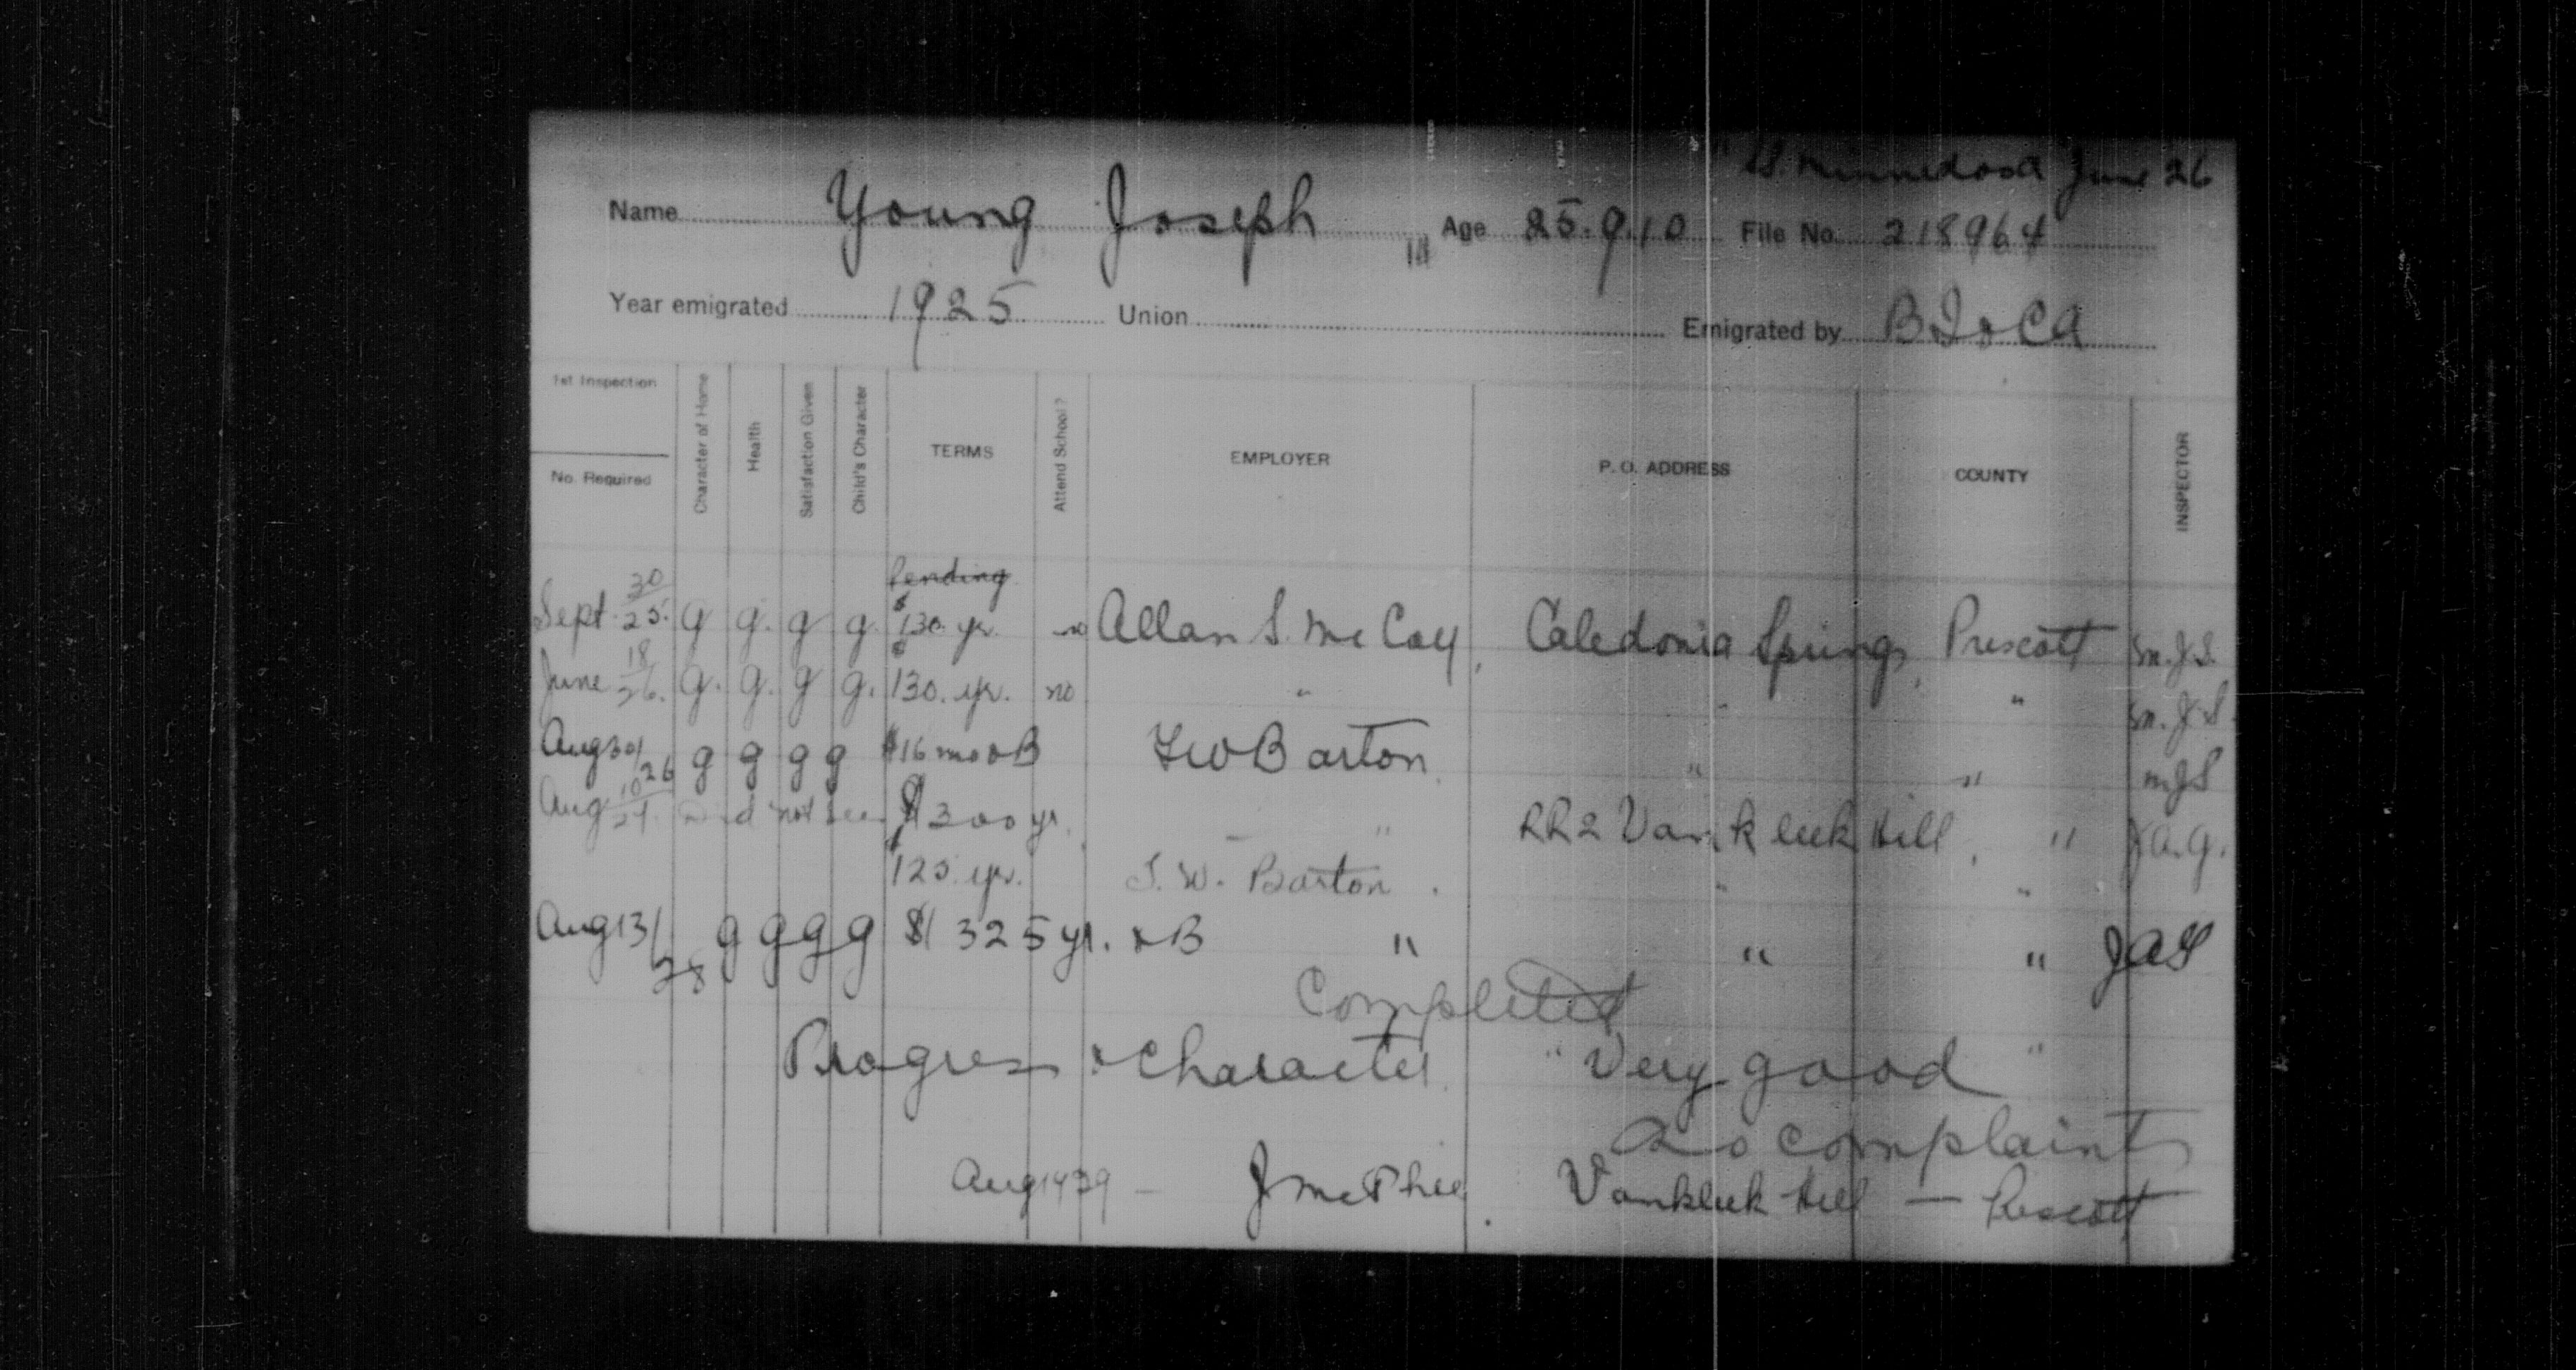 SS. Minnedosa June 26
Name Young Joseph Age 25.9.10 File No. 218964
Year emigrated 1925 Union Emigrated by
1st Inspection
No. Required
Character of Home
Health
Satisfaction Given
Child's Character
TERMS
Attend School?
EMPLOYER
P. O. ADDRESS
COUNTY
INSPECTOR
Pending
Sept 30/25. g g. g g. $130 yr. no Allan S. McCoy, Caledonia Springs, Prescott
June 18/26. g. g. g g. $130. yr. no " " "
Aug 30/26 g g g g $16 mo & B Barton " "
Aug 10 Did not see $300 yr. " RR2 Vankleek Hill, "
125. yr. Barton. " "
Aug 13/28 g g g g $ 325 yr. & B " " "
Completed
Progress & Character "Very good"
No complaints
Aug 14 29 - J McPhee Vankleek Hill — Prescott